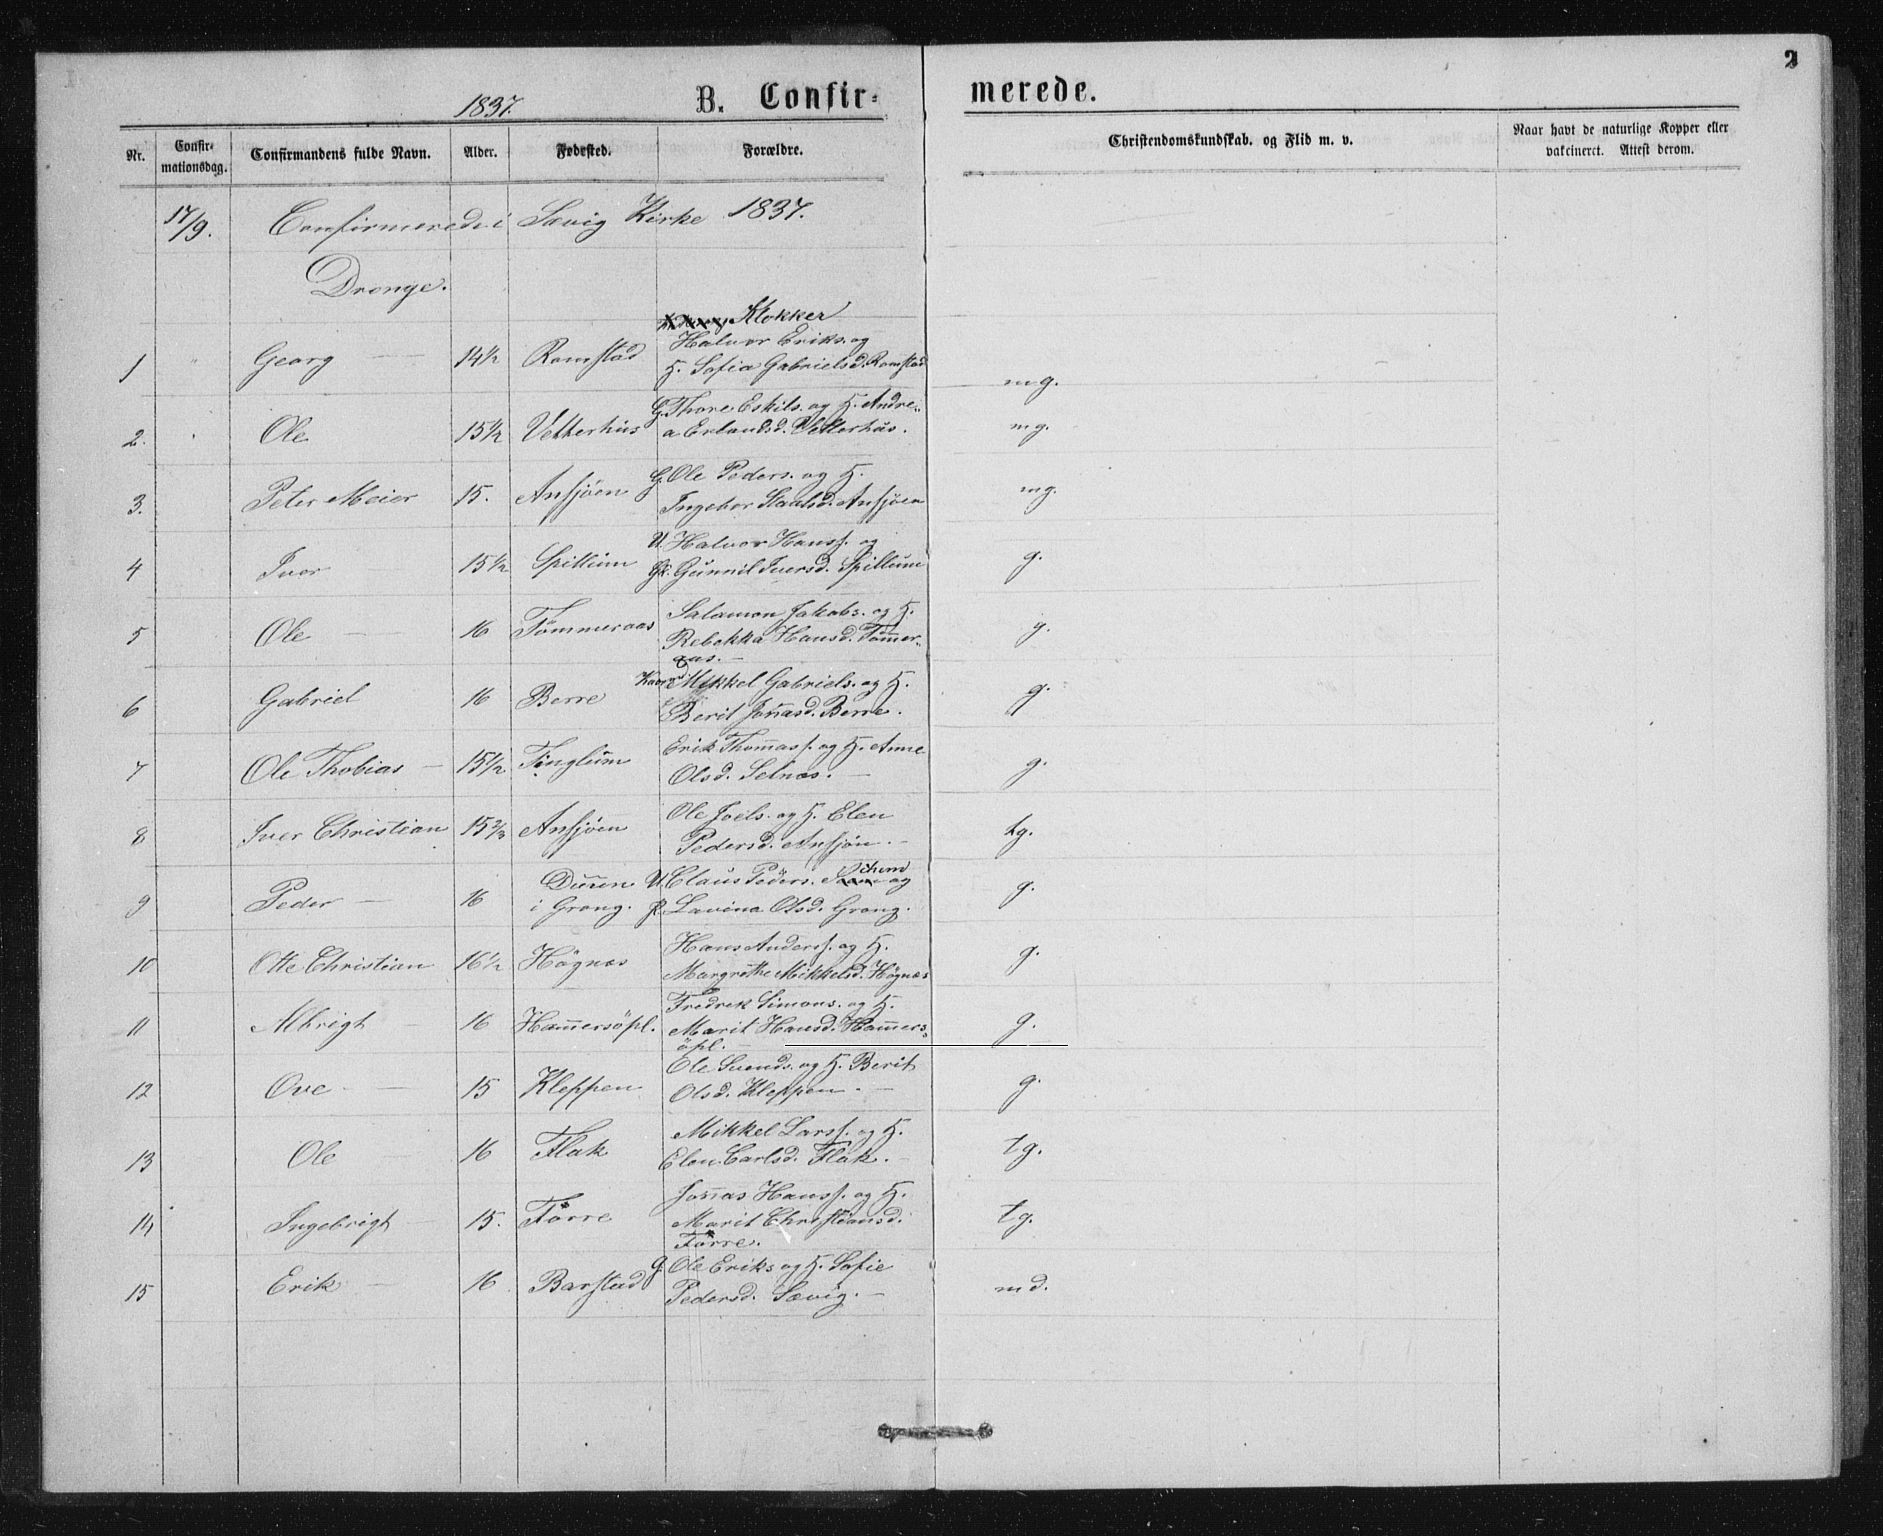 2
1837.
B. Confir-
merede.
Nr.
Confir-
mationsdag.
Confirmandens fulde Navn.
Alder.
Fødested.
Forældre.
Christendomskundskab. og Flid m. v.
Naar havt de naturlige Kopper eller
vakcineret. Attest derom.
17/9. Confirmerede i Sævig Kirke 1837.
Drenge.
Klokker
Halvor Eriks. og
1 Georg 14½ Romstad H. Sofia Gabrielsd. Romstad mg.
G. Thore Eskils. og H. Andre-
2. Ole 15½ Vetterhus a Erlandsd. Vetterhus. mg.
G. Ole Peders. og H.
3. Peter Meier 15. Ansjøen Ingebor Staalsd. Ansjøen mg.
U. Halvor Hanss. og
4 Iver 15½ Spillum Gunnil Iversd. Spillum g.
Salamon Jakobs. og H.
5 Ole 16 Tømmeraas Rebekka Hansd. Tømer-
aas. g.
Mikkel Gabriels. og H.
6 Gabriel 16 Berre Berit Jonasd. Berre. g.
Erik Thomass. og H. Anne
7 Ole Thobias 15½ Tinglum Olsd. Selnæs. g.
Ole Joels. og H. Elen
8 Iver Christian 15⅔ Ansjøen Pedersd. Ansjön. tg.
Duun U. Claus Peders. og
9 Peder 16 i Grong. P. Lavina Olsd. Grong. g.
Hans Anderss. og H.
10 Otte Christian 16½ Høgnæs Margrethe Mikkelsd. Høgnæs g.
Fredrek Simons. og H.
11 Albrigt 16 Hammersöpl. Marit Hansd. Hammers-
öpl. g.
Ole Svends. og H. Berit
12 Ove 15 Kleppen Olsd. Kleppen. g.
Mikkel Larss. og H.
13 Ole 16 Flak Elen Carlsd. Flak. tg.
Jonas Hanss. og H.
14 Ingebrigt 15. Førre Marit Christiansd.
Førre. tg.
G. Ole Eriks og H. Sofie
15 Erik 16 Barstad Pedersd. Sævig. md.